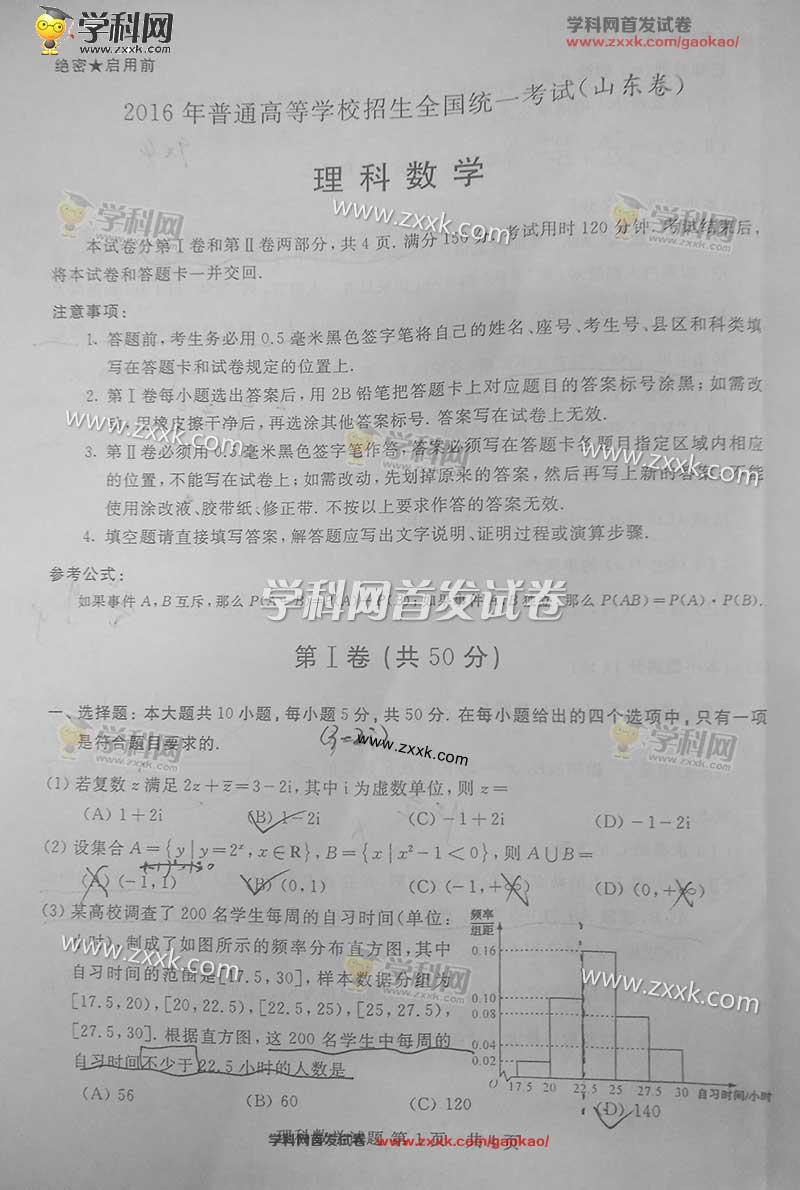 学科网
www.zxxk.com
学科网首发试卷
www.zxxk.com/gaokao/
绝密★启用前
2016年普通高等学校招生全国统一考试(山东卷)
理科数学
学科网
www.zxxk.com
学科网
本试卷分第Ⅰ卷和第Ⅱ卷两部分,共4页.满分150分.考试用时120分钟.考试结束后,
将本试卷和答题卡一并交回.
注意事项:
1. 答题前,考生务必用0.5毫米黑色签字笔将自己的姓名、座号、考生号、县区和科类填
写在答题卡和试卷规定的位置上.
2. 第Ⅰ卷每小题选出答案后,用2B铅笔把答题卡上对应题目的答案标号涂黑;如需改
动,用橡皮擦干净后,再选涂其他答案标号.答案写在试卷上无效.
www.zxxk.com
学科网
www.zxxk.com
3. 第Ⅱ卷必须用0.5毫米黑色签字笔作答,答案必须写在答题卡各题目指定区域内相应
的位置,不能写在试卷上;如需改动,先划掉原来的答案,然后再写上新的答案;不能
使用涂改液、胶带纸、修正带.不按以上要求作答的答案无效.
4. 填空题请直接填写答案,解答题应写出文字说明、证明过程或演算步骤.
参考公式:
如果事件A,B互斥,那么P(A+B)=P(A)+P(B);如果事件A,B独立,那么P(AB)=P(A)·P(B).
学科网首发试卷
第Ⅰ卷(共50分)
一、选择题:本大题共10小题,每小题5分,共50分.在每小题给出的四个选项中,只有一项
是符合题目要求的.
(3-2i)
www.zxxk.com
学科网
学科网
(1)若复数z满足2z+z̅=3-2i,其中i为虚数单位,则z=
(A) 1+2i (B) 1-2i (C) -1+2i (D) -1-2i
(2)设集合A={y|y=2ˣ,x∈R},B={x|x²-1<0},则A∪B=
(A) (-1,1) (B) (0,1) (C) (-1,+∞) (D) (0,+∞)
(3)某高校调查了200名学生每周的自习时间(单位:
小时),制成了如图所示的频率分布直方图,其中
自习时间的范围是[17.5,30],样本数据分组为
[17.5,20),[20,22.5),[22.5,25),[25,27.5),
[27.5,30].根据直方图,这200名学生中每周的
自习时间不少于22.5小时的人数是
www.zxxk.com
学科网
www.zxxk.com
频率
组距
0.16
0.10
0.08
0.04
0.02
O 17.5 20 22.5 25 27.5 30 自习时间/小时
(A) 56 (B) 60 (C) 120 (D) 140
理科数学试题 第1页 共4页
学科网首发试卷 www.zxxk.com/gaokao/